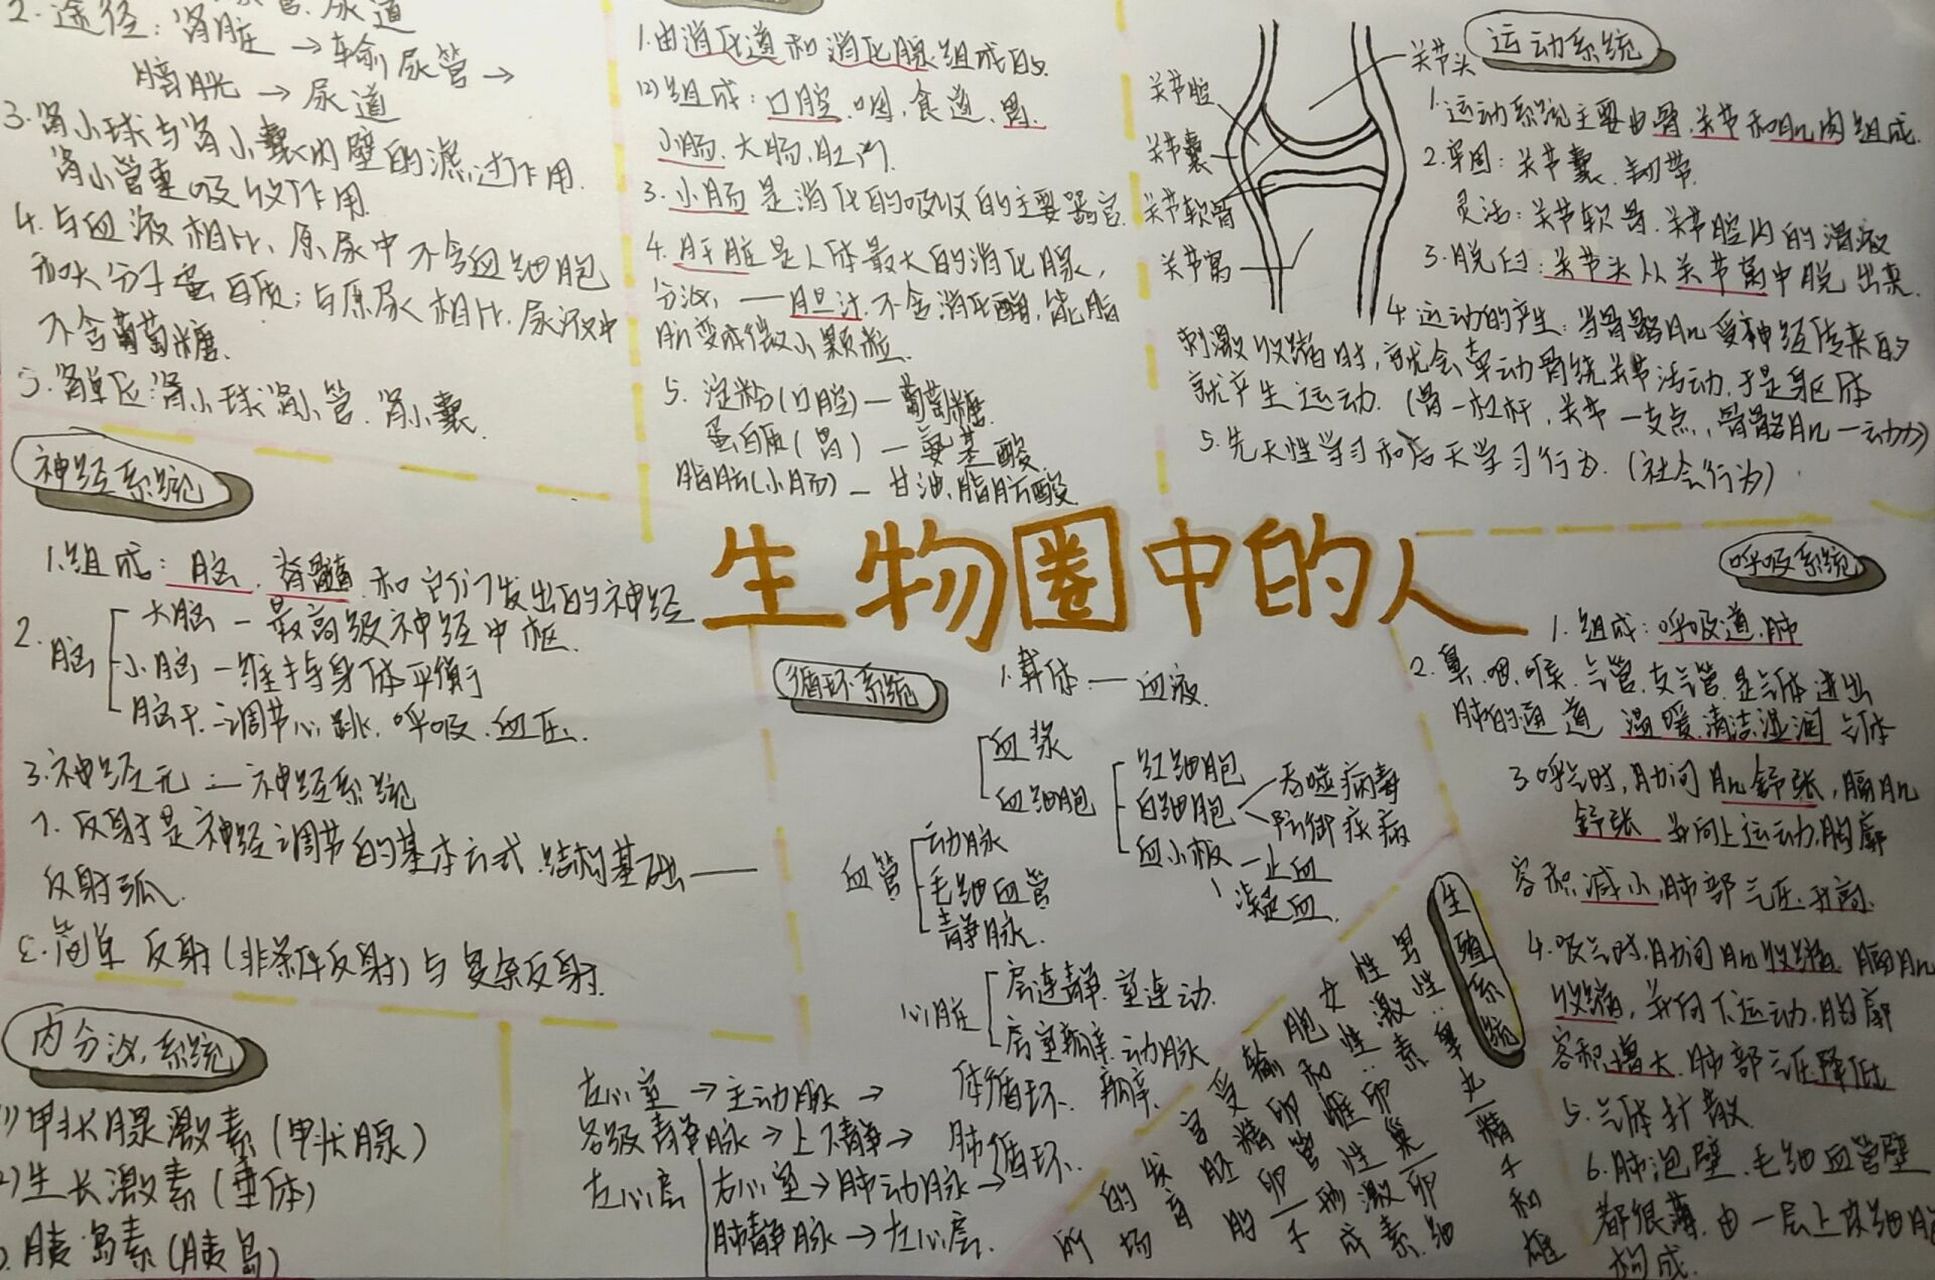 2.途径:肾脏→输尿管→
膀胱→尿道
3.肾小球与肾小囊内壁的滤过作用.
肾小管重吸收作用.
4.与血液相比、原尿中不含血细胞
和大分子蛋白质;与原尿相比.尿液中
不含葡萄糖.
5.肾单位:肾小球.肾小管.肾小囊.
神经系统
1.组成:脑、脊髓和它们发出的神经
2.脑
大脑-最高级神经中枢.
小脑-维持身体平衡
脑干-调节心跳.呼吸.血压.
3.神经元=神经系统
7.反射是神经调节的基本方式.结构基础——
反射弧.
8.简单反射(非条件反射)与复杂反射.
内分泌系统
1)甲状腺激素(甲状腺)
2)生长激素(垂体)
胰岛素(胰岛)
1.由消化道和消化腺组成的.
(2)组成:口腔.咽.食道、胃.
小肠.大肠.肛门.
3.小肠是消化的吸收的主要器官.
4.肝脏是人体最大的消化腺,
分泌——胆汁.不含消化酶,能脂
肪变成微小颗粒.
5.淀粉(口腔)—葡萄糖.
蛋白质(胃)—氨基酸
脂肪(小肠)—甘油.脂肪酸
关节头
关节腔
关节囊
关节软骨
关节窝
运动系统
1.运动系统主要由骨.关节和肌肉组成.
2.牢固:关节囊、韧带.
灵活:关节软骨.关节腔内的滑液
3.脱臼:关节头从关节窝中脱出来.
4.运动的产生:当骨骼肌受神经传来的
刺激收缩时,就会牵动骨绕关节活动.于是躯体
就产生运动.(骨—杠杆,关节—支点,骨骼肌—动力)
5.先天性学习和后天学习行为.(社会行为)
生物圈中的人
循环系统
1.载体—血液.
血浆
血细胞
红细胞
白细胞
吞噬病毒
防御疾病
血小板—止血
凝血.
血管
动脉
毛细血管
静脉.
心脏
房连静.室连动.
房室瓣.动脉
瓣.
左心室→主动脉→体循环.
各级静脉→上下静→肺循环.
左心房
右心室→肺动脉→
肺静脉→左心房.
呼吸系统
1.组成:呼吸道.肺
2.鼻.咽.喉.气管.支气管.是气体进出
肺的通道 温暖.清洁.湿润气体
3.呼气时,肋间肌舒张,膈肌
舒张 并向上运动,胸廓
容积减小,肺部气压升高.
4.吸气时,肋间肌收缩.膈肌
收缩,并向下运动.胸廓
容积增大.肺部气压降低
5.气体扩散
6.肺泡壁.毛细血管壁
都很薄.由一层上皮细胞
构成.
生殖系统
男性:睾丸—精子和雄
性激素.
女性:卵巢—卵细
胞和雌性激素
输卵管—形成
受精卵